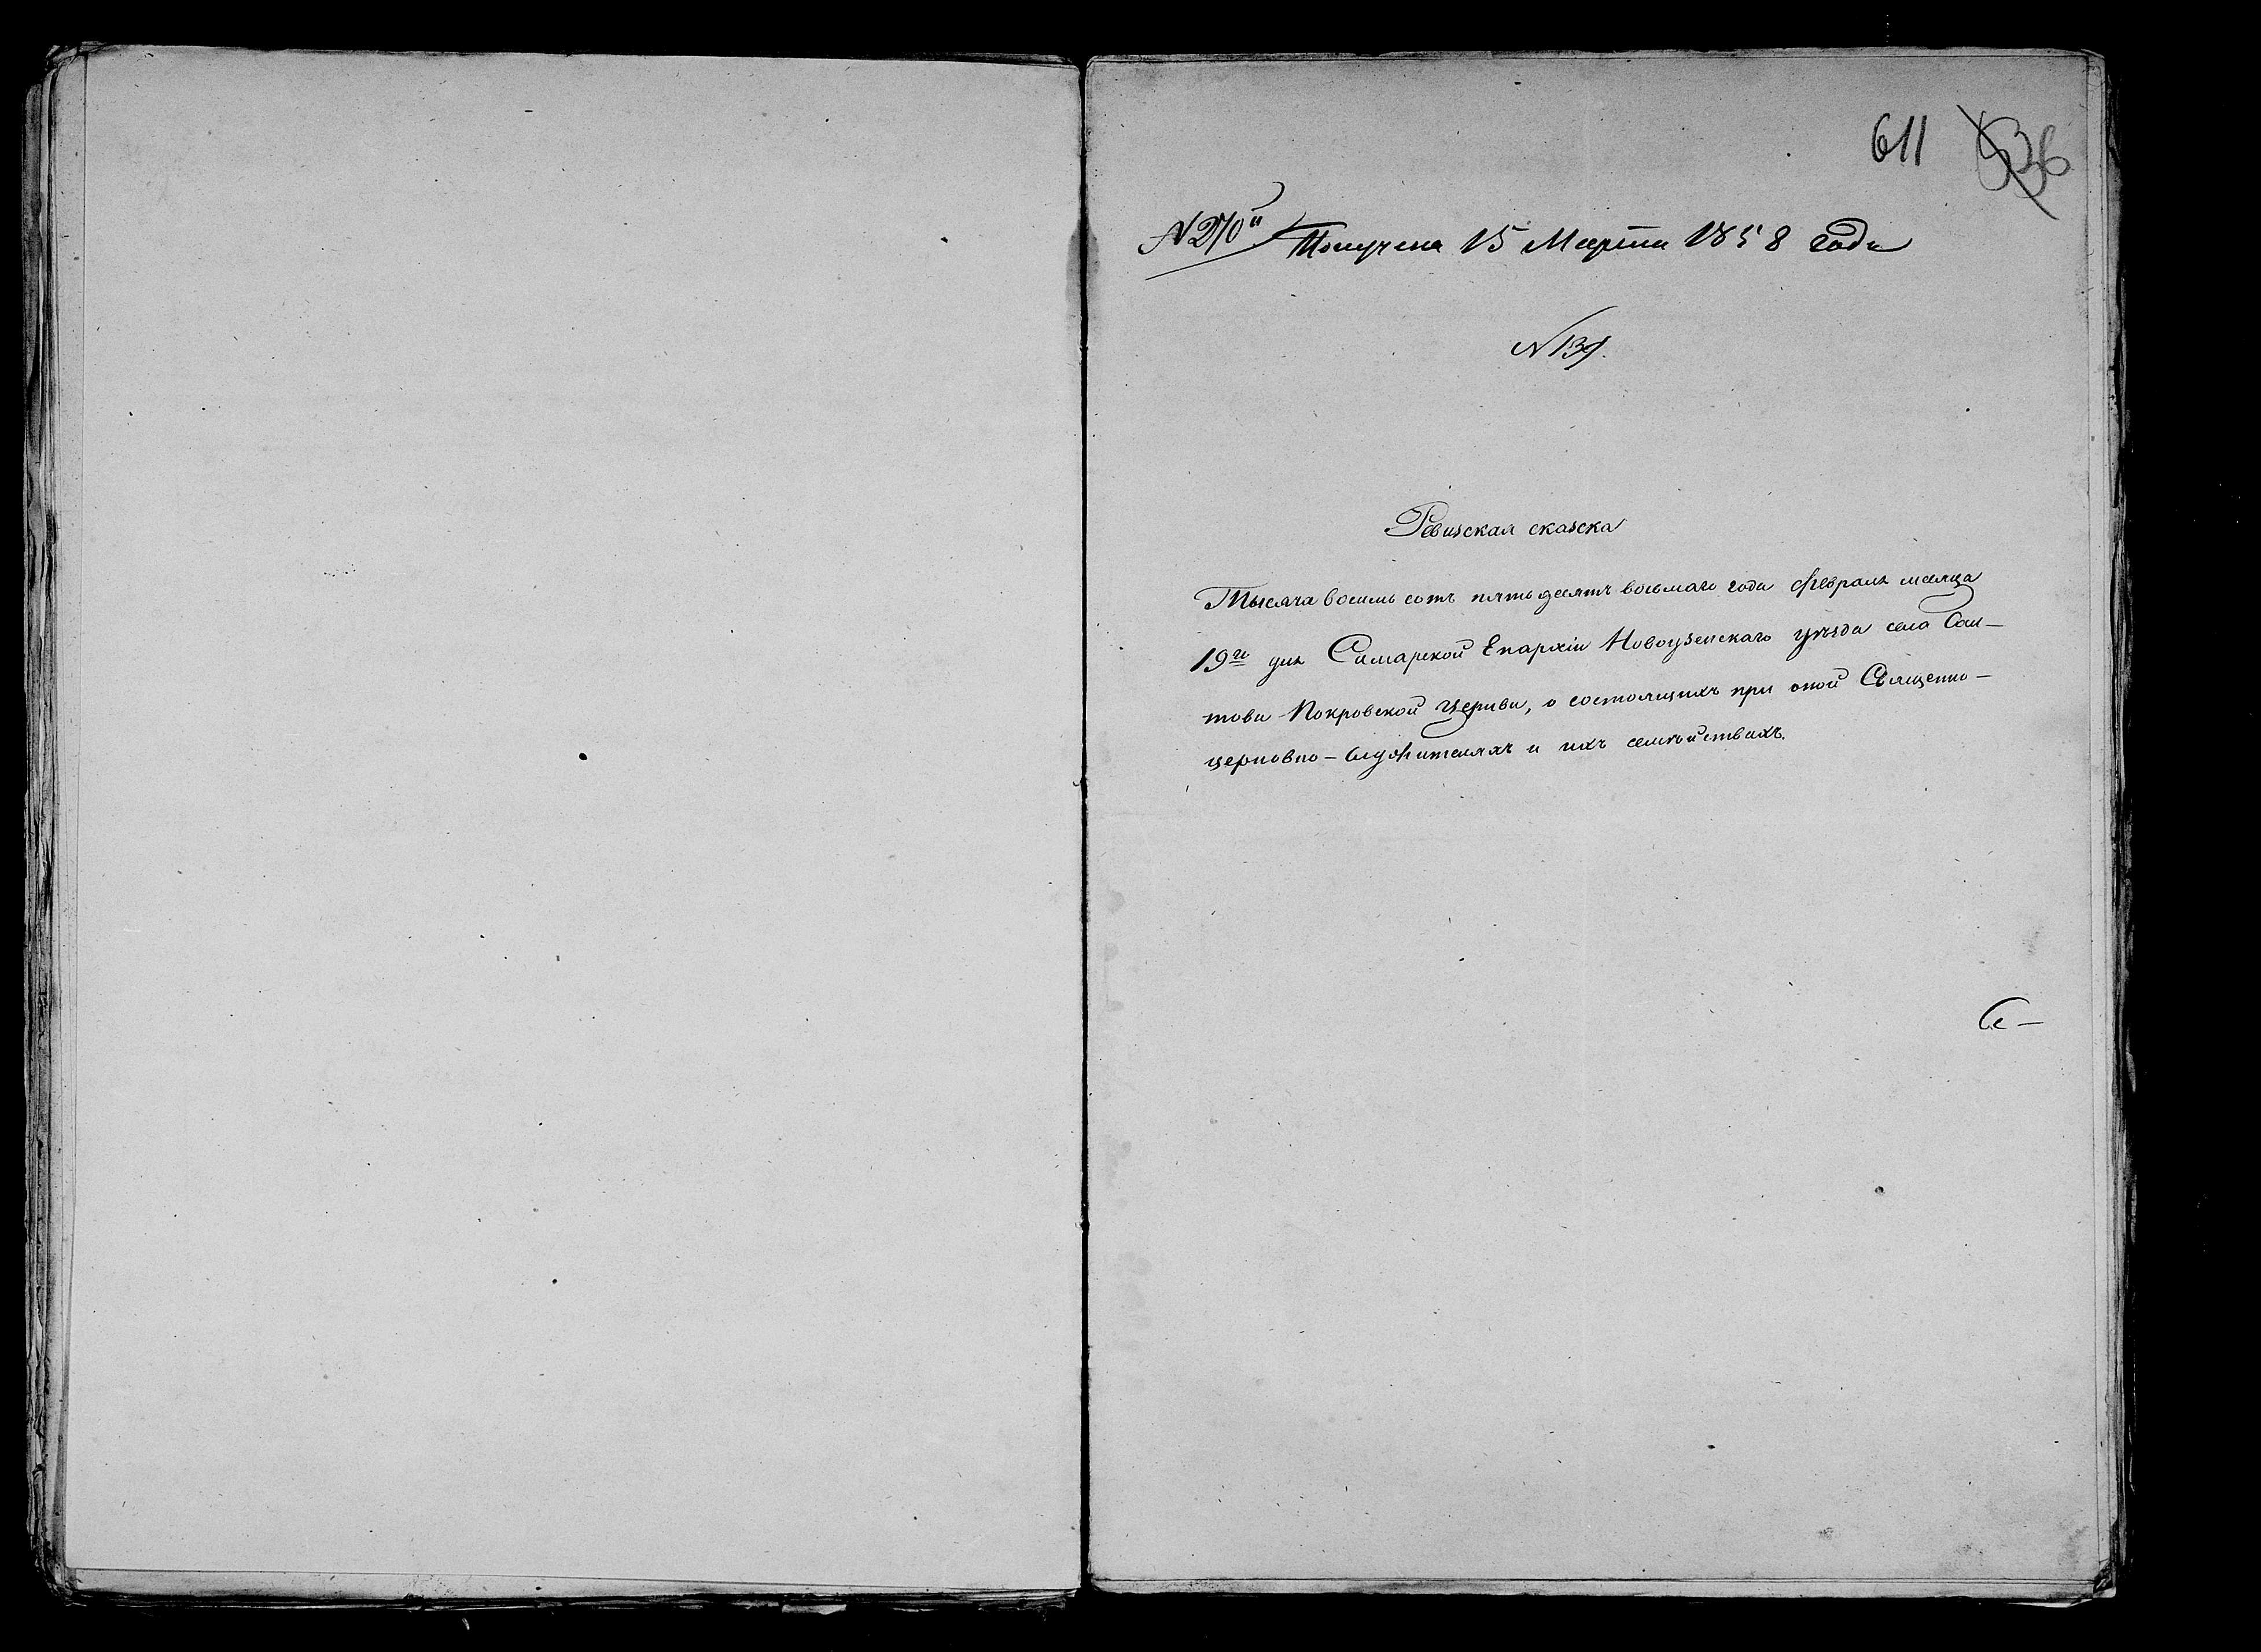 611 636
N 270й Получена 15 Марта 1858 года
N 139.
Ревизская сказска
Тысяча восемь сотъ пятьдесятъ восьмаго года Февраля месяца
19го дня Самарской Епархіи Новоузенскаго уѣзда села Сал-
това Покровской Церкви, о состоящихъ при оной Священно-
церковно-служителяхъ и ихъ семѣйствахъ.
Се-